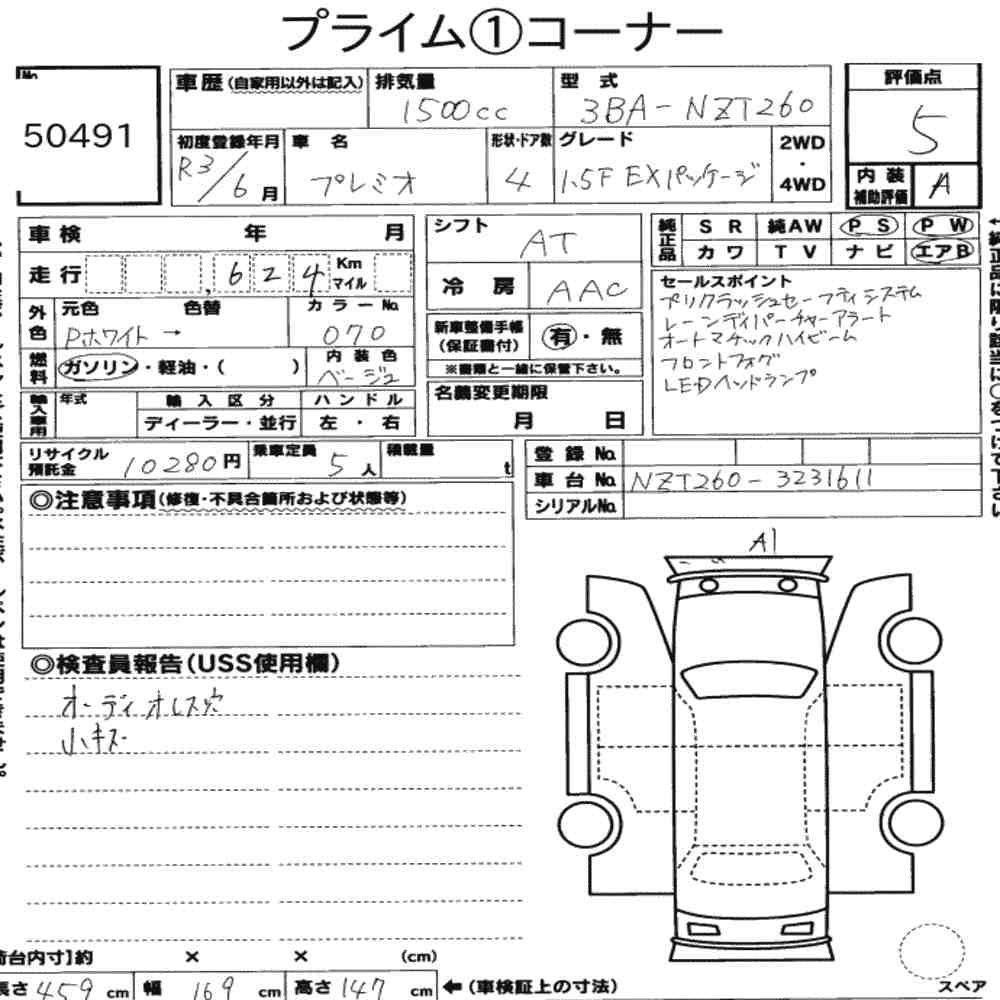 プライム①コーナー
No.
50491
車歴(自家用以外は記入)
排気量
1500cc
型 式
3BA-NZT260
評価点
5
初度登録年月
R3/6月
車 名
プレミオ
形状・ドア数
4
グレード
1.5F EXパッケージ
2WD
・
4WD
内装
補助評価
A
車検 年 月
走行 624 Km マイル
外色
元色 色替
Pホワイト →
カラーNo.
070
燃料
ガソリン・軽油・( )
内装色
ベージュ
輸入車用
年式
輸入区分
ディーラー・並行
ハンドル
左 ・ 右
シフト
AT
冷房
AAC
新車整備手帳
(保証書付)
有・無
※書類と一緒に保管下さい。
名義変更期限
月 日
純正品
SR 純AW PS PW
カワ TV ナビ エアB
セールスポイント
プリクラッシュセーフティシステム
レーンディパーチャーアラート
オートマチックハイビーム
フロントフォグ
LEDヘッドランプ
リサイクル
預託金
10280円
乗車定員
5人
積載量
t
登録 No.
車台 No. NZT260-3231611
シリアルNo.
◎注意事項(修復・不具合箇所および状態等)
A1
◎検査員報告(USS使用欄)
オーディオレス穴
小キズ
荷台内寸]約 × × (cm)
長さ 459 cm 幅 169 cm 高さ 147 cm ←(車検証上の寸法)
スペア